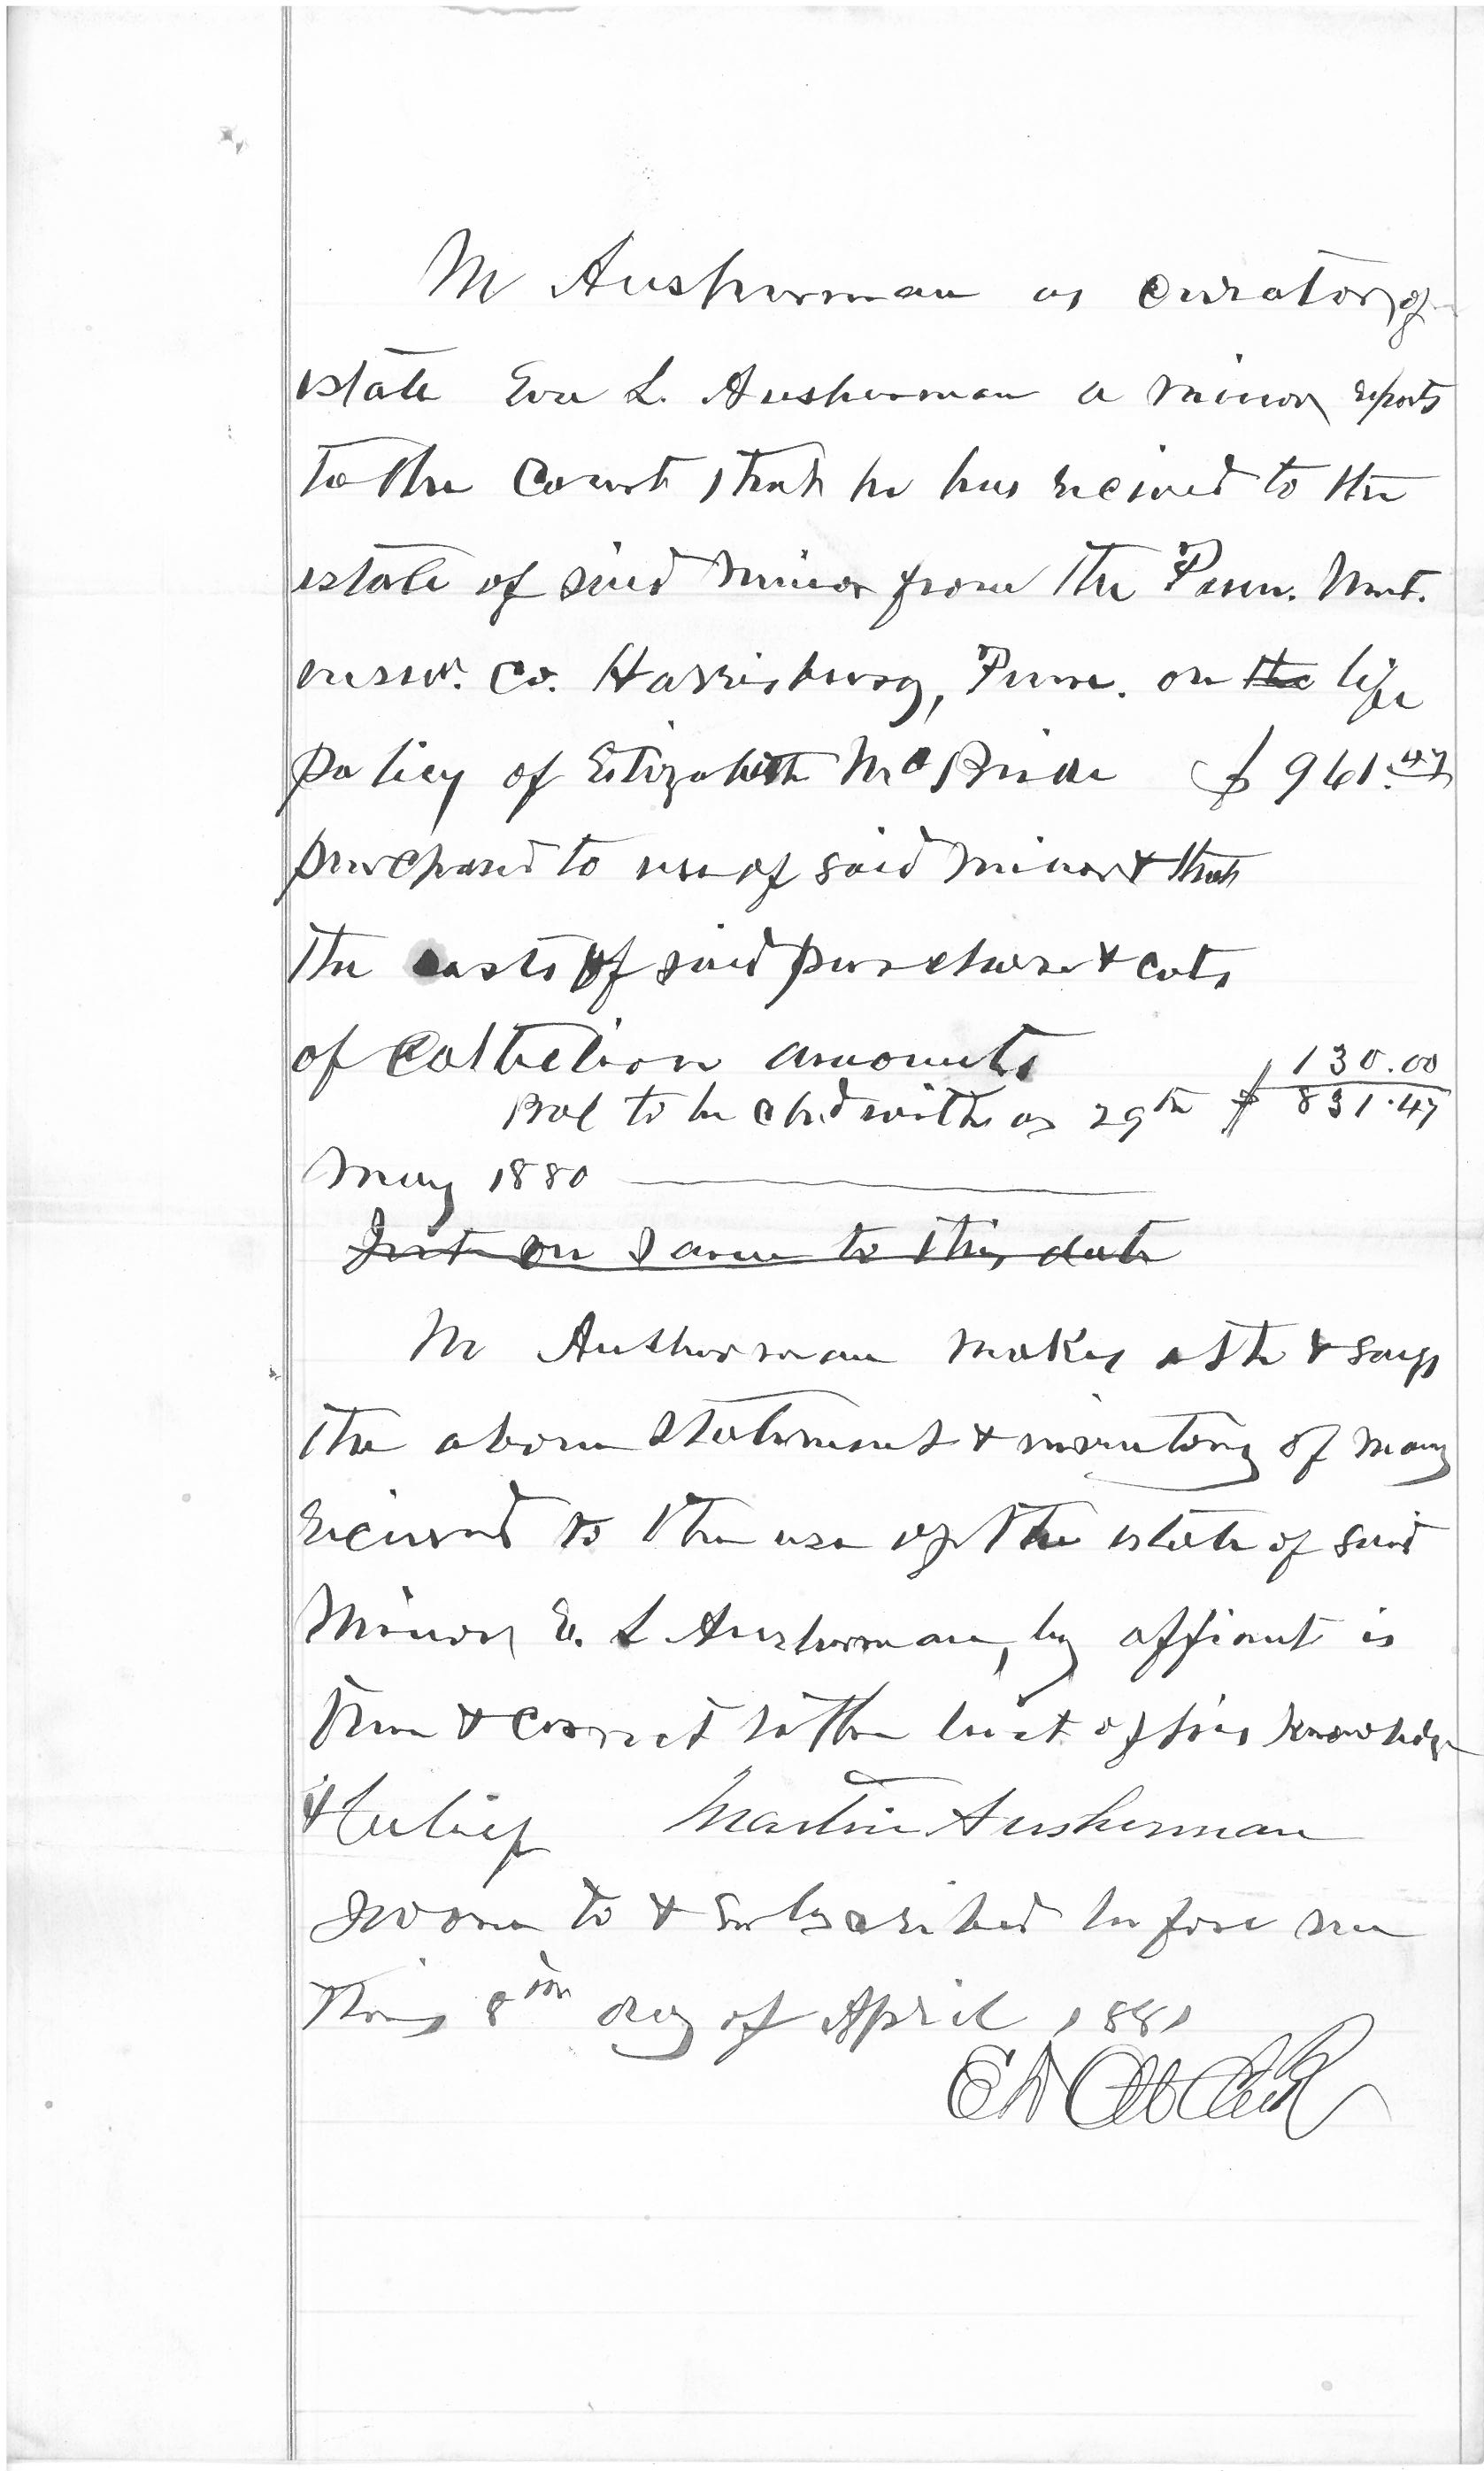 M Ausherman as curator of
estate Eva L. Ausherman a minor reports
to the Court that he has recived to the
estate of said minor from the Penn. Mut.
Co. Harrisburg, Penn. on the life
policy of Elizabeth McBride $961.47
purchased to use of said minor & that
the costs of said purchase & cots
of collection amounts 130.00
Bal to be chd with as 29th $831.47
May 1880
Int on same to this date
M Ausherman makes oth & says
the above statement & inventory of mony
recived to the use of the estate of said
minor E. L Ausherman, by affiant is
true & correct to the best of his knowledge
& belief Martin Ausherman
Sworn to & subscribed before me
this 8th day of April 1881